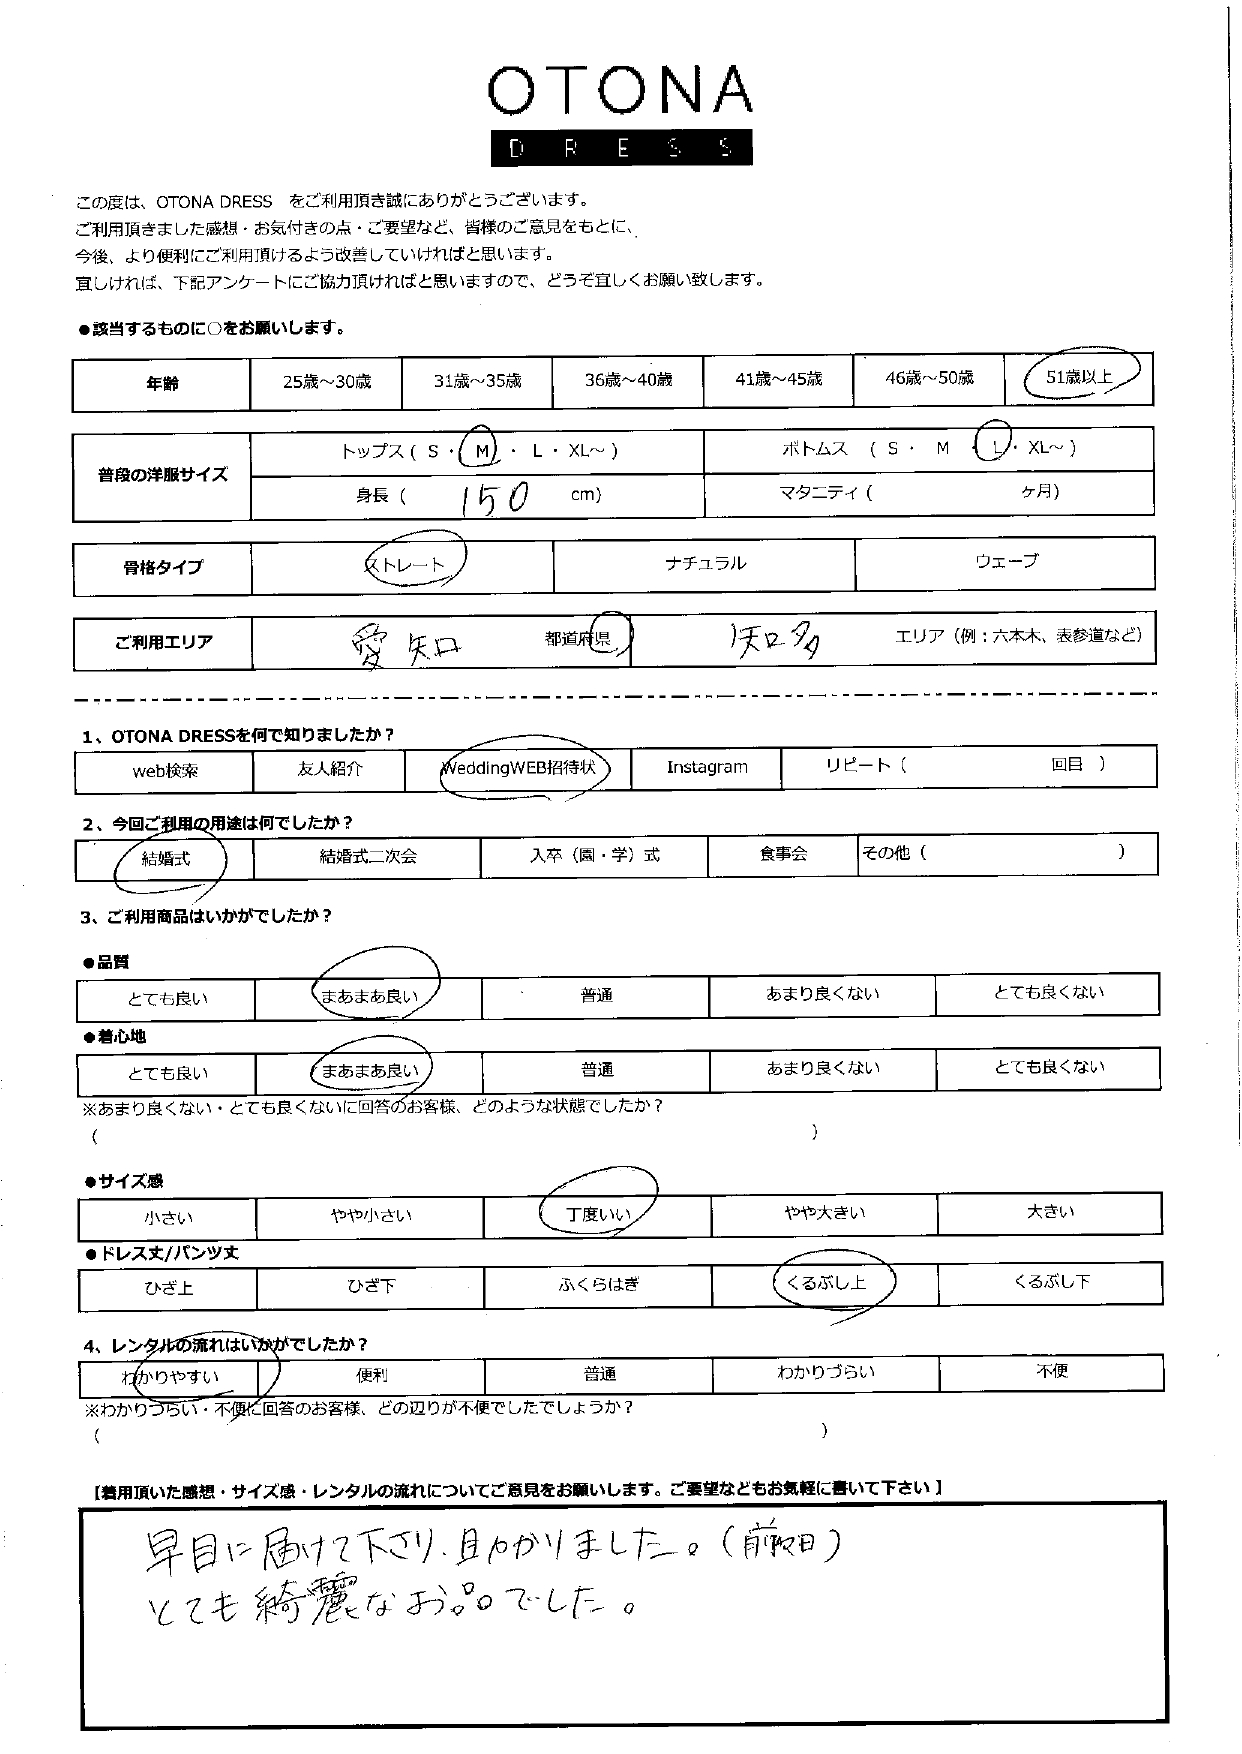 OTONA
DRESS
この度は、OTONA DRESS をご利用頂き誠にありがとうございます。
ご利用頂きました感想・お気付きの点・ご要望など、皆様のご意見をもとに、
今後、より便利にご利用頂けるよう改善していければと思います。
宜しければ、下記アンケートにご協力頂ければと思いますので、どうぞ宜しくお願い致します。
●該当するものに○をお願いします。
年齢 25歳～30歳 31歳～35歳 36歳～40歳 41歳～45歳 46歳～50歳 51歳以上
普段の洋服サイズ トップス ( S ・ M ・ L ・ XL～ ) ボトムス ( S ・ M ・ L ・ XL～ )
身長 ( 150 cm) マタニティ ( ケ月)
骨格タイプ ストレート ナチュラル ウェーブ
ご利用エリア 愛知 都道府県 知多 エリア（例：六本木、表参道など）
1、OTONA DRESSを何で知りましたか？
web検索 友人紹介 WeddingWEB招待状 Instagram リピート（ 回目 ）
2、今回ご利用の用途は何でしたか？
結婚式 結婚式二次会 入卒（園・学）式 食事会 その他（ ）
3、ご利用商品はいかがでしたか？
●品質
とても良い まあまあ良い 普通 あまり良くない とても良くない
●着心地
とても良い まあまあ良い 普通 あまり良くない とても良くない
※あまり良くない・とても良くないに回答のお客様、どのような状態でしたか？
（ ）
●サイズ感
小さい やや小さい 丁度いい やや大きい 大きい
●ドレス丈/パンツ丈
ひざ上 ひざ下 ふくらはぎ くるぶし上 くるぶし下
4、レンタルの流れはいかがでしたか？
わかりやすい 便利 普通 わかりづらい 不便
※わかりづらい・不便に回答のお客様、どの辺りが不便でしたでしょうか？
（ ）
【着用頂いた感想・サイズ感・レンタルの流れについてご意見をお願いします。ご要望などもお気軽に書いて下さい】
早目に届けて下さり、助かりました。（前日）
とても綺麗なお品でした。